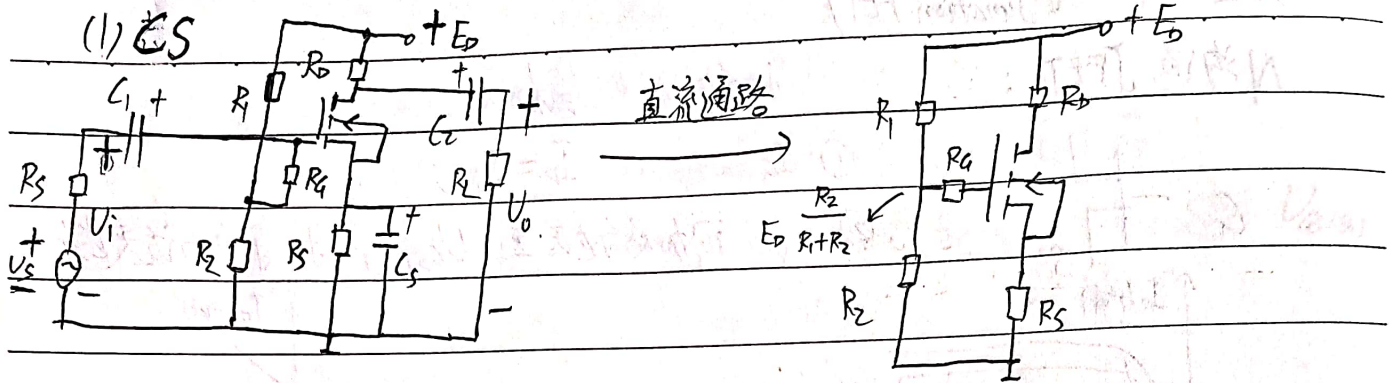 (1) CS
+ E_D
R_D
C_1 +
R_1
+
C_2
+
R_S
+
U_i
R_G
R_L
U_o
+
U_s
-
R_2
R_S
+
C_s
-
直流通路
+ E_D
R_1
R_D
R_G
E_D R_2/(R_1+R_2)
R_2
R_S